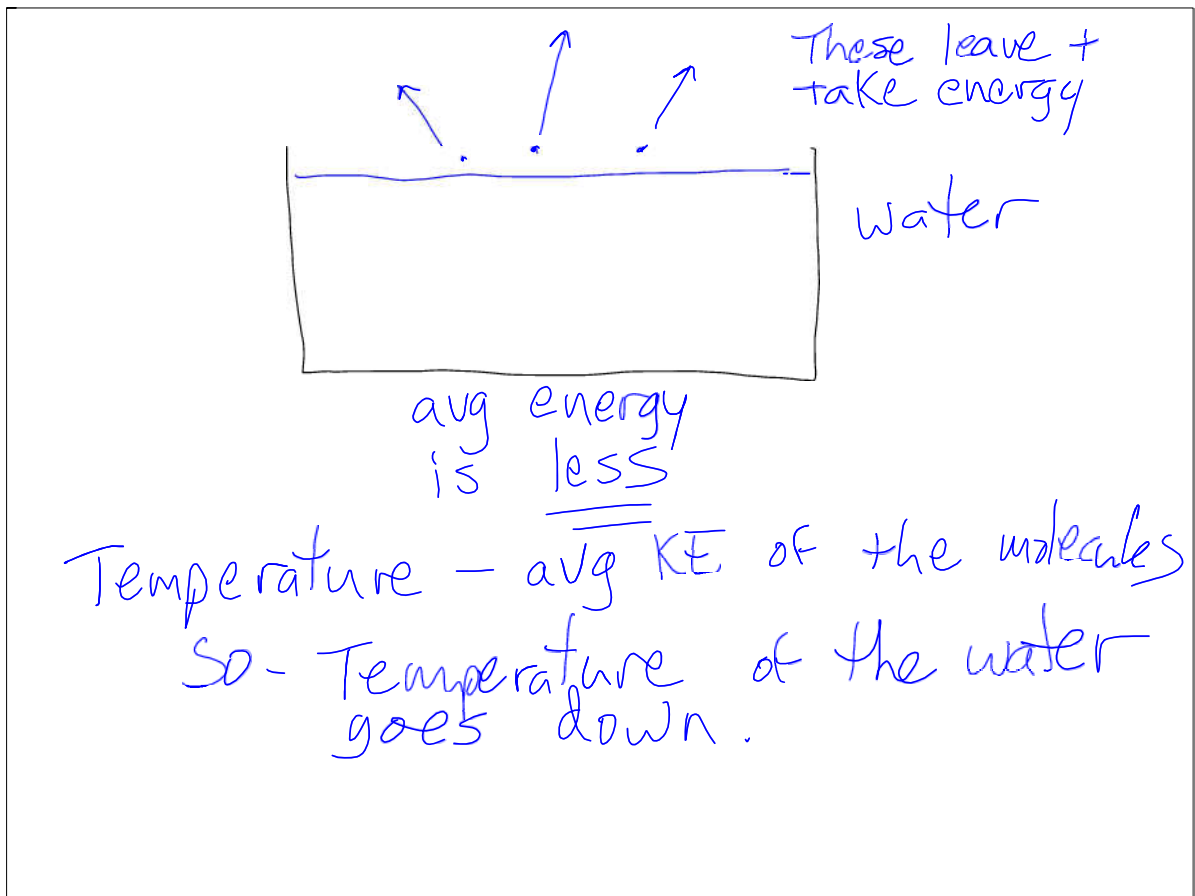 These leave +
take energy
water
avg energy
is less
Temperature - avg KE of the molecules
So- Temperature of the water
goes down.